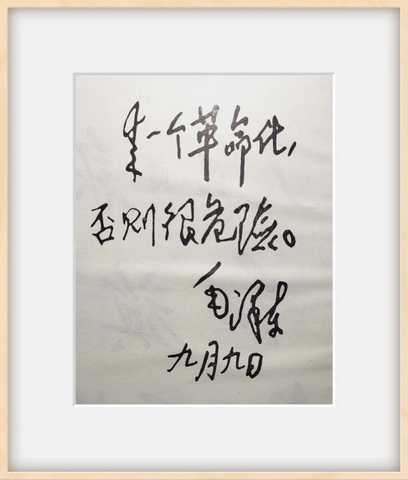 来一个革命化，
否则很危险。
毛泽东
九月九日